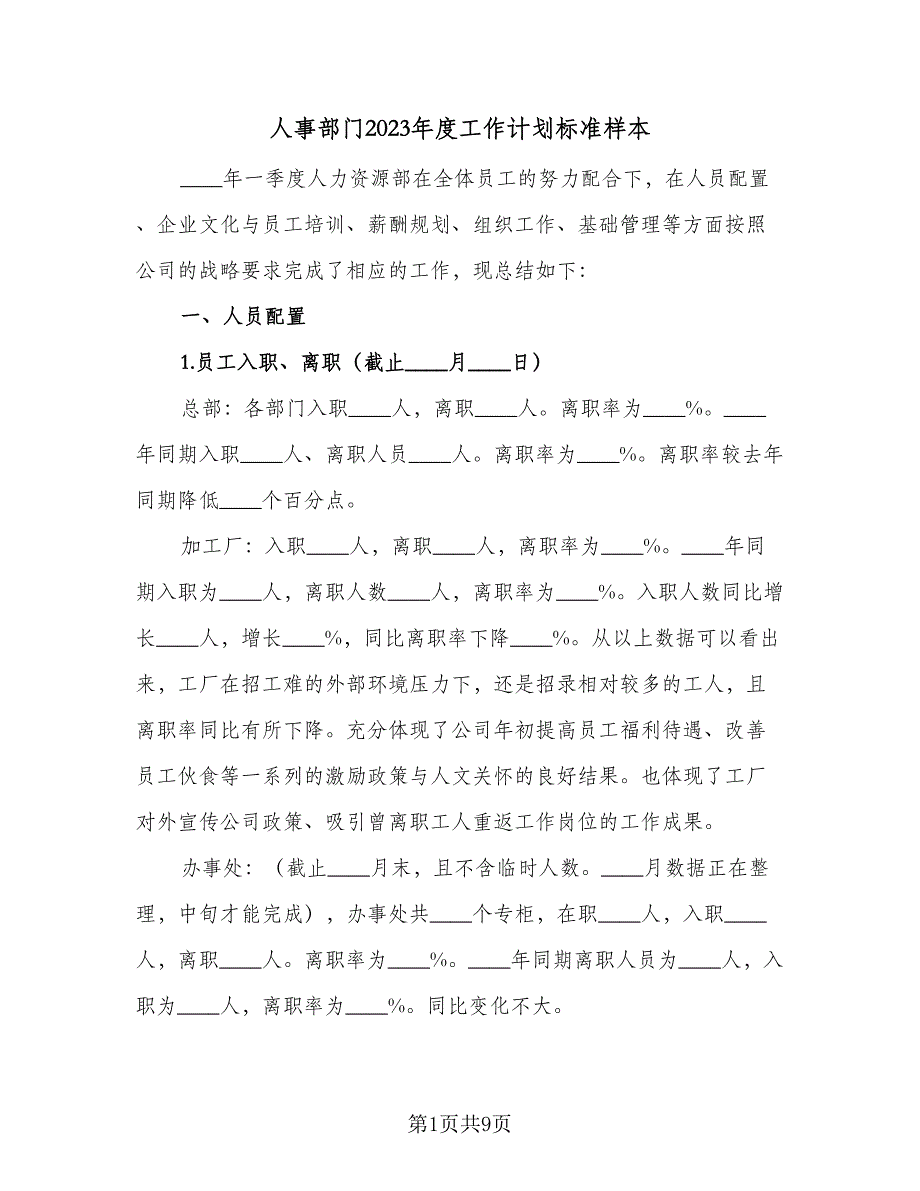 人事部门2023年度工作计划标准样本
____年一季度人力资源部在全体员工的努力配合下，在人员配置
、企业文化与员工培训、薪酬规划、组织工作、基础管理等方面按照
公司的战略要求完成了相应的工作，现总结如下：
一、人员配置
1.员工入职、离职（截止____月____日）
总部：各部门入职____人，离职____人。离职率为____%。____
年同期入职____人、离职人员____人。离职率为____%。离职率较去年
同期降低____个百分点。
加工厂：入职____人，离职____人，离职率为____%。____年同
期入职为____人，离职人数____人，离职率为____%。入职人数同比增
长____人，增长____%，同比离职率下降____%。从以上数据可以看出
来，工厂在招工难的外部环境压力下，还是招录相对较多的工人，且
离职率同比有所下降。充分体现了公司年初提高员工福利待遇、改善
员工伙食等一系列的激励政策与人文关怀的良好结果。也体现了工厂
对外宣传公司政策、吸引曾离职工人重返工作岗位的工作成果。
办事处：（截止____月末，且不含临时人数。____月数据正在整
理，中旬才能完成），办事处共____个专柜，在职____人，入职____
人，离职____人。离职率为____%。____年同期离职人员为____人，入
职为____人，离职率为____%。同比变化不大。
第1页共9页